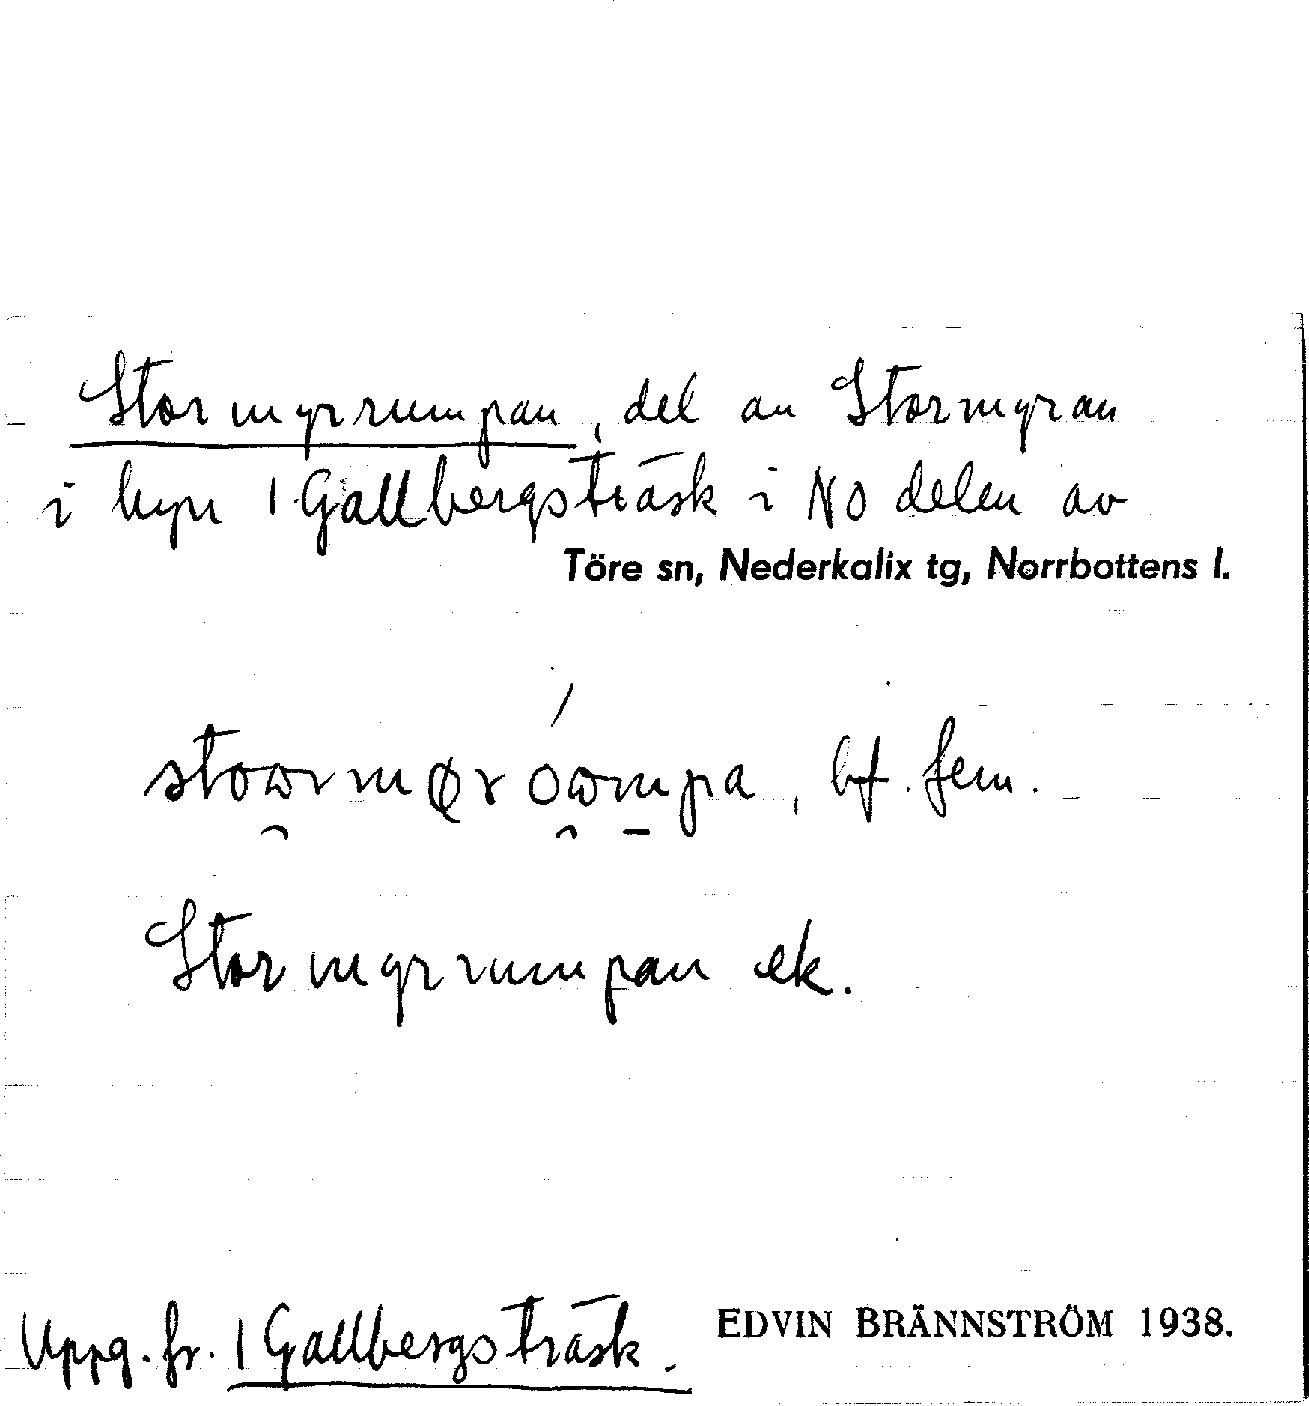 Stormyrrumpan, del av Stormyran
i byn 1 Gallbergsträsk i NO delen av
Töre sn, Nederkalix tg, Norrbottens l.
bf. fem.
Stormyrrumpan ek.
Uppg. fr. 1 Gallbergsträsk.
EDVIN BRÄNNSTRÖM 1938.